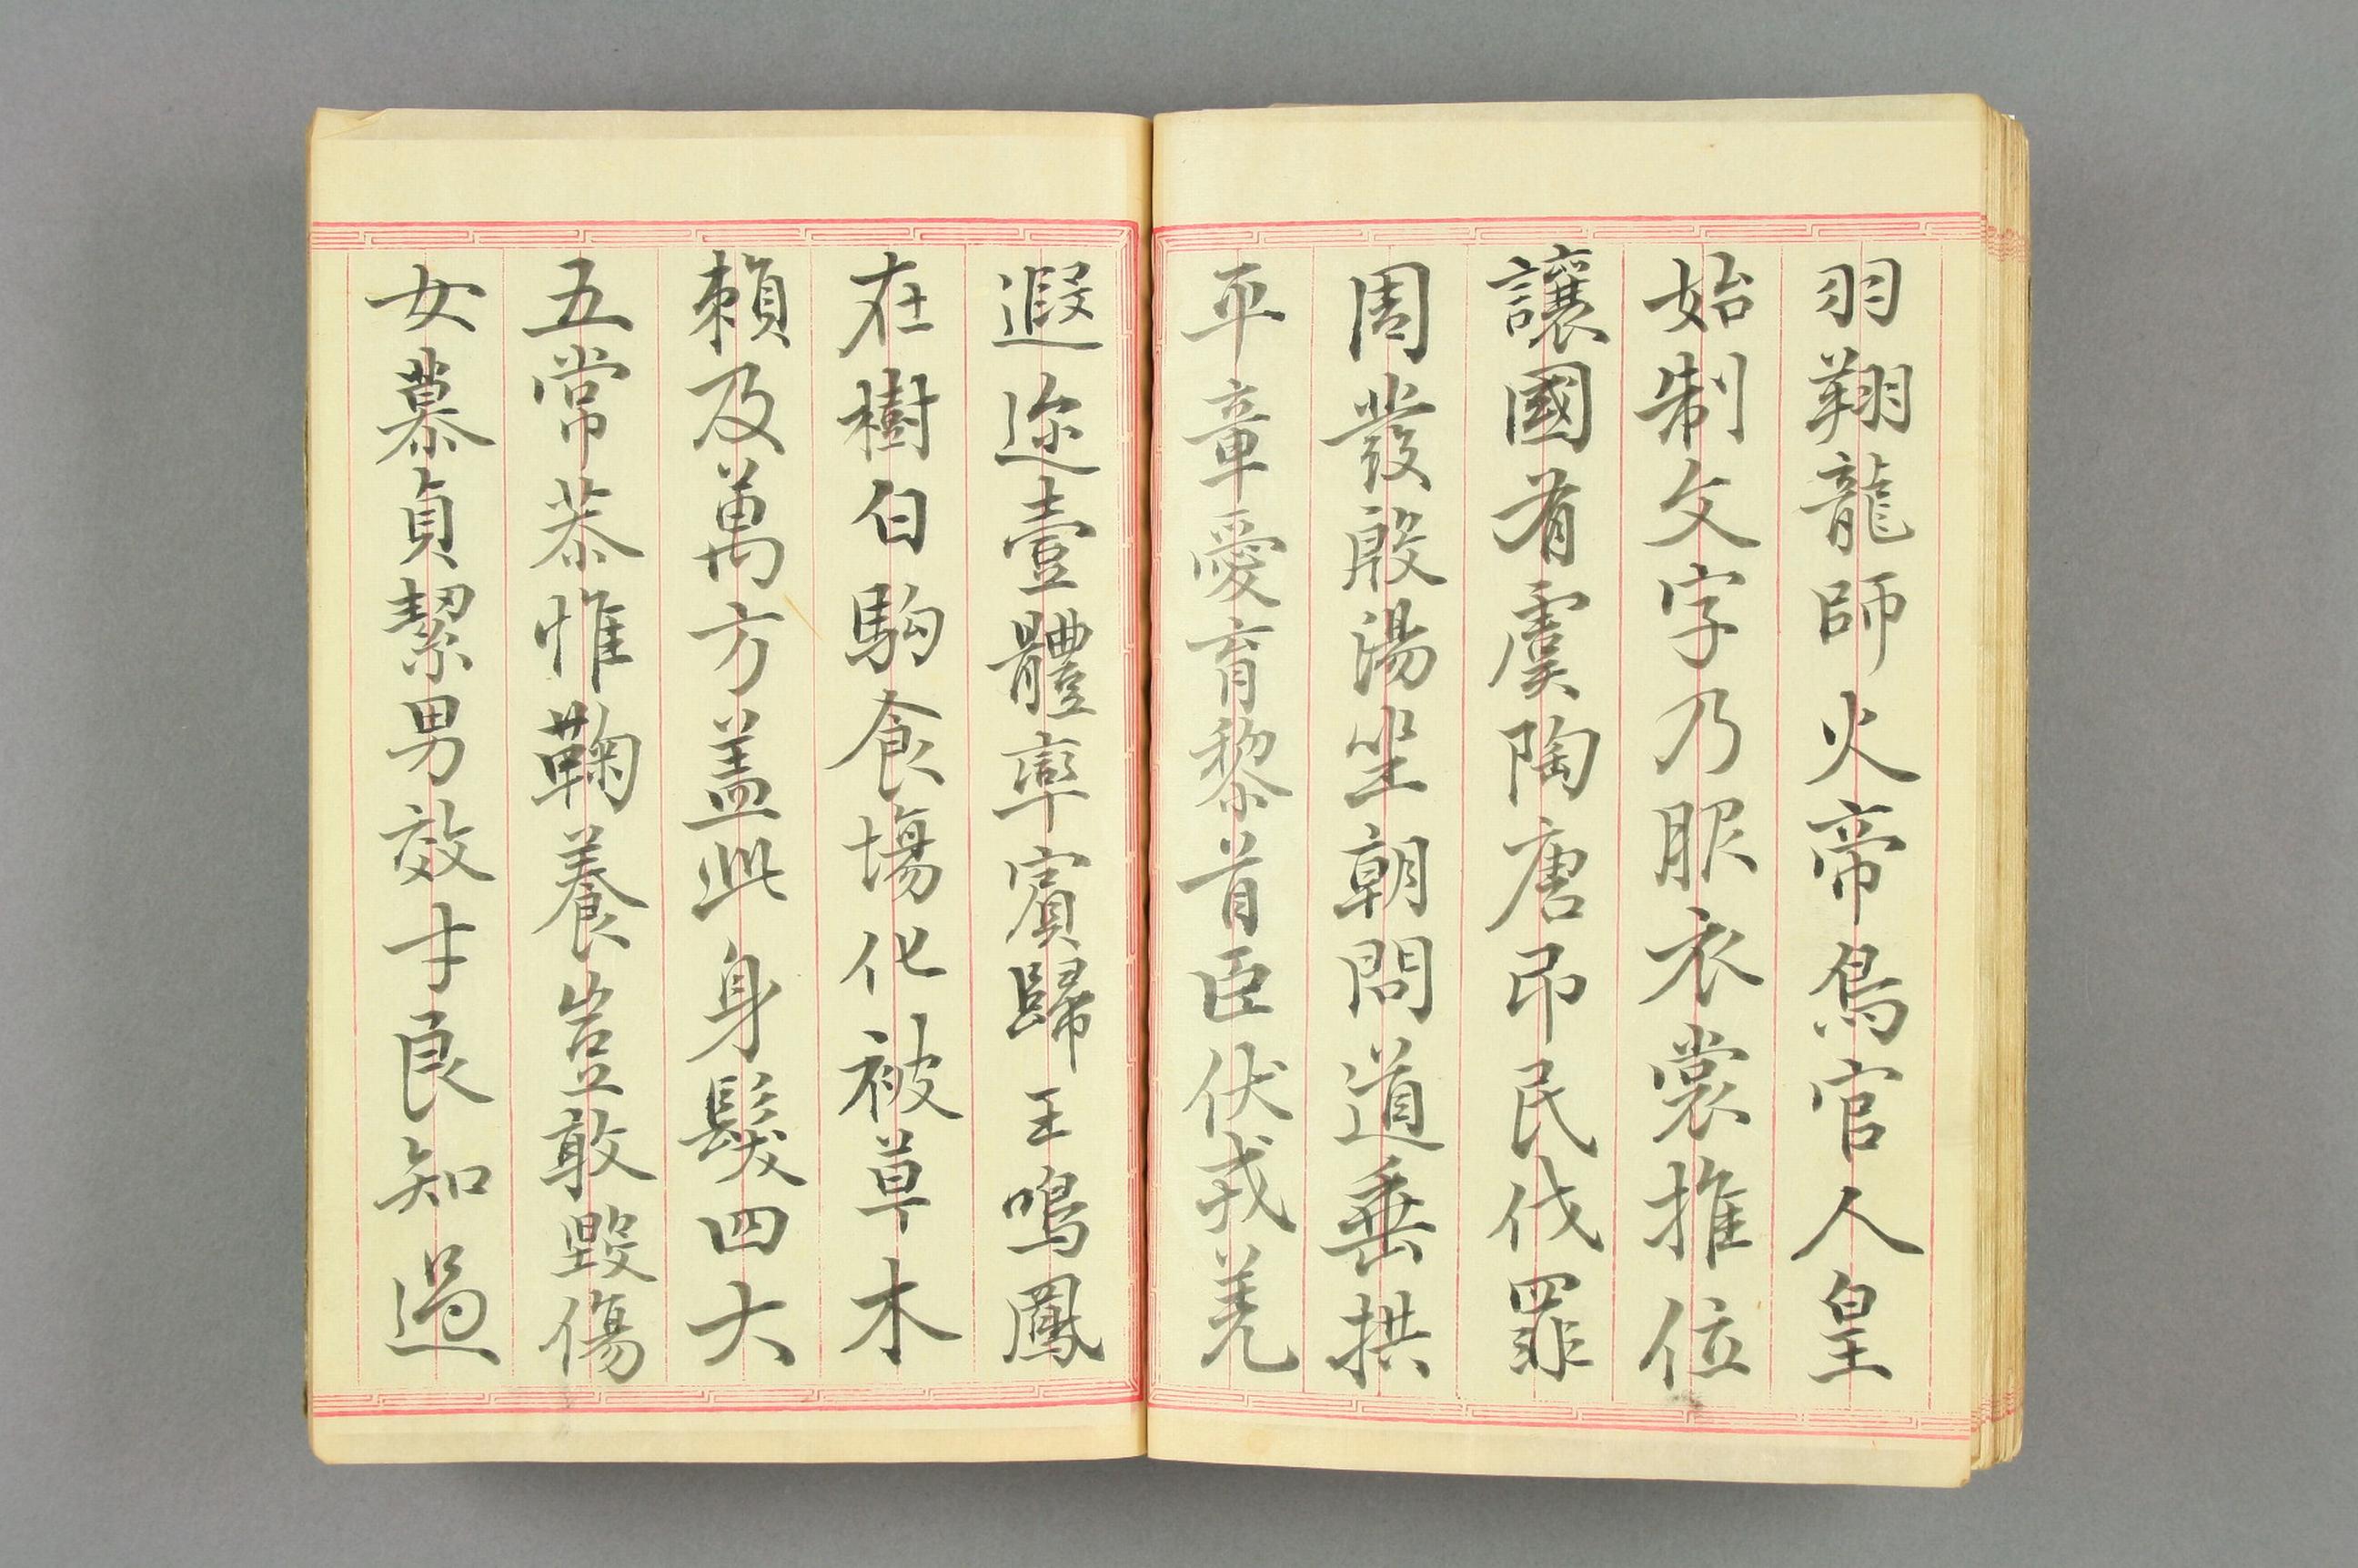 羽翔龍師火帝鳥官人皇
始制文字乃服衣裳推位
讓國有虞陶唐弔民伐罪
周發殷湯坐朝問道垂拱
平章愛育黎首臣伏戎羌
遐迩壹體率賓歸王鳴鳳
在樹白駒食場化被草木
賴及萬方蓋此身髮四大
五常恭惟鞠養豈敢毀傷
女慕貞絜男效才良知過